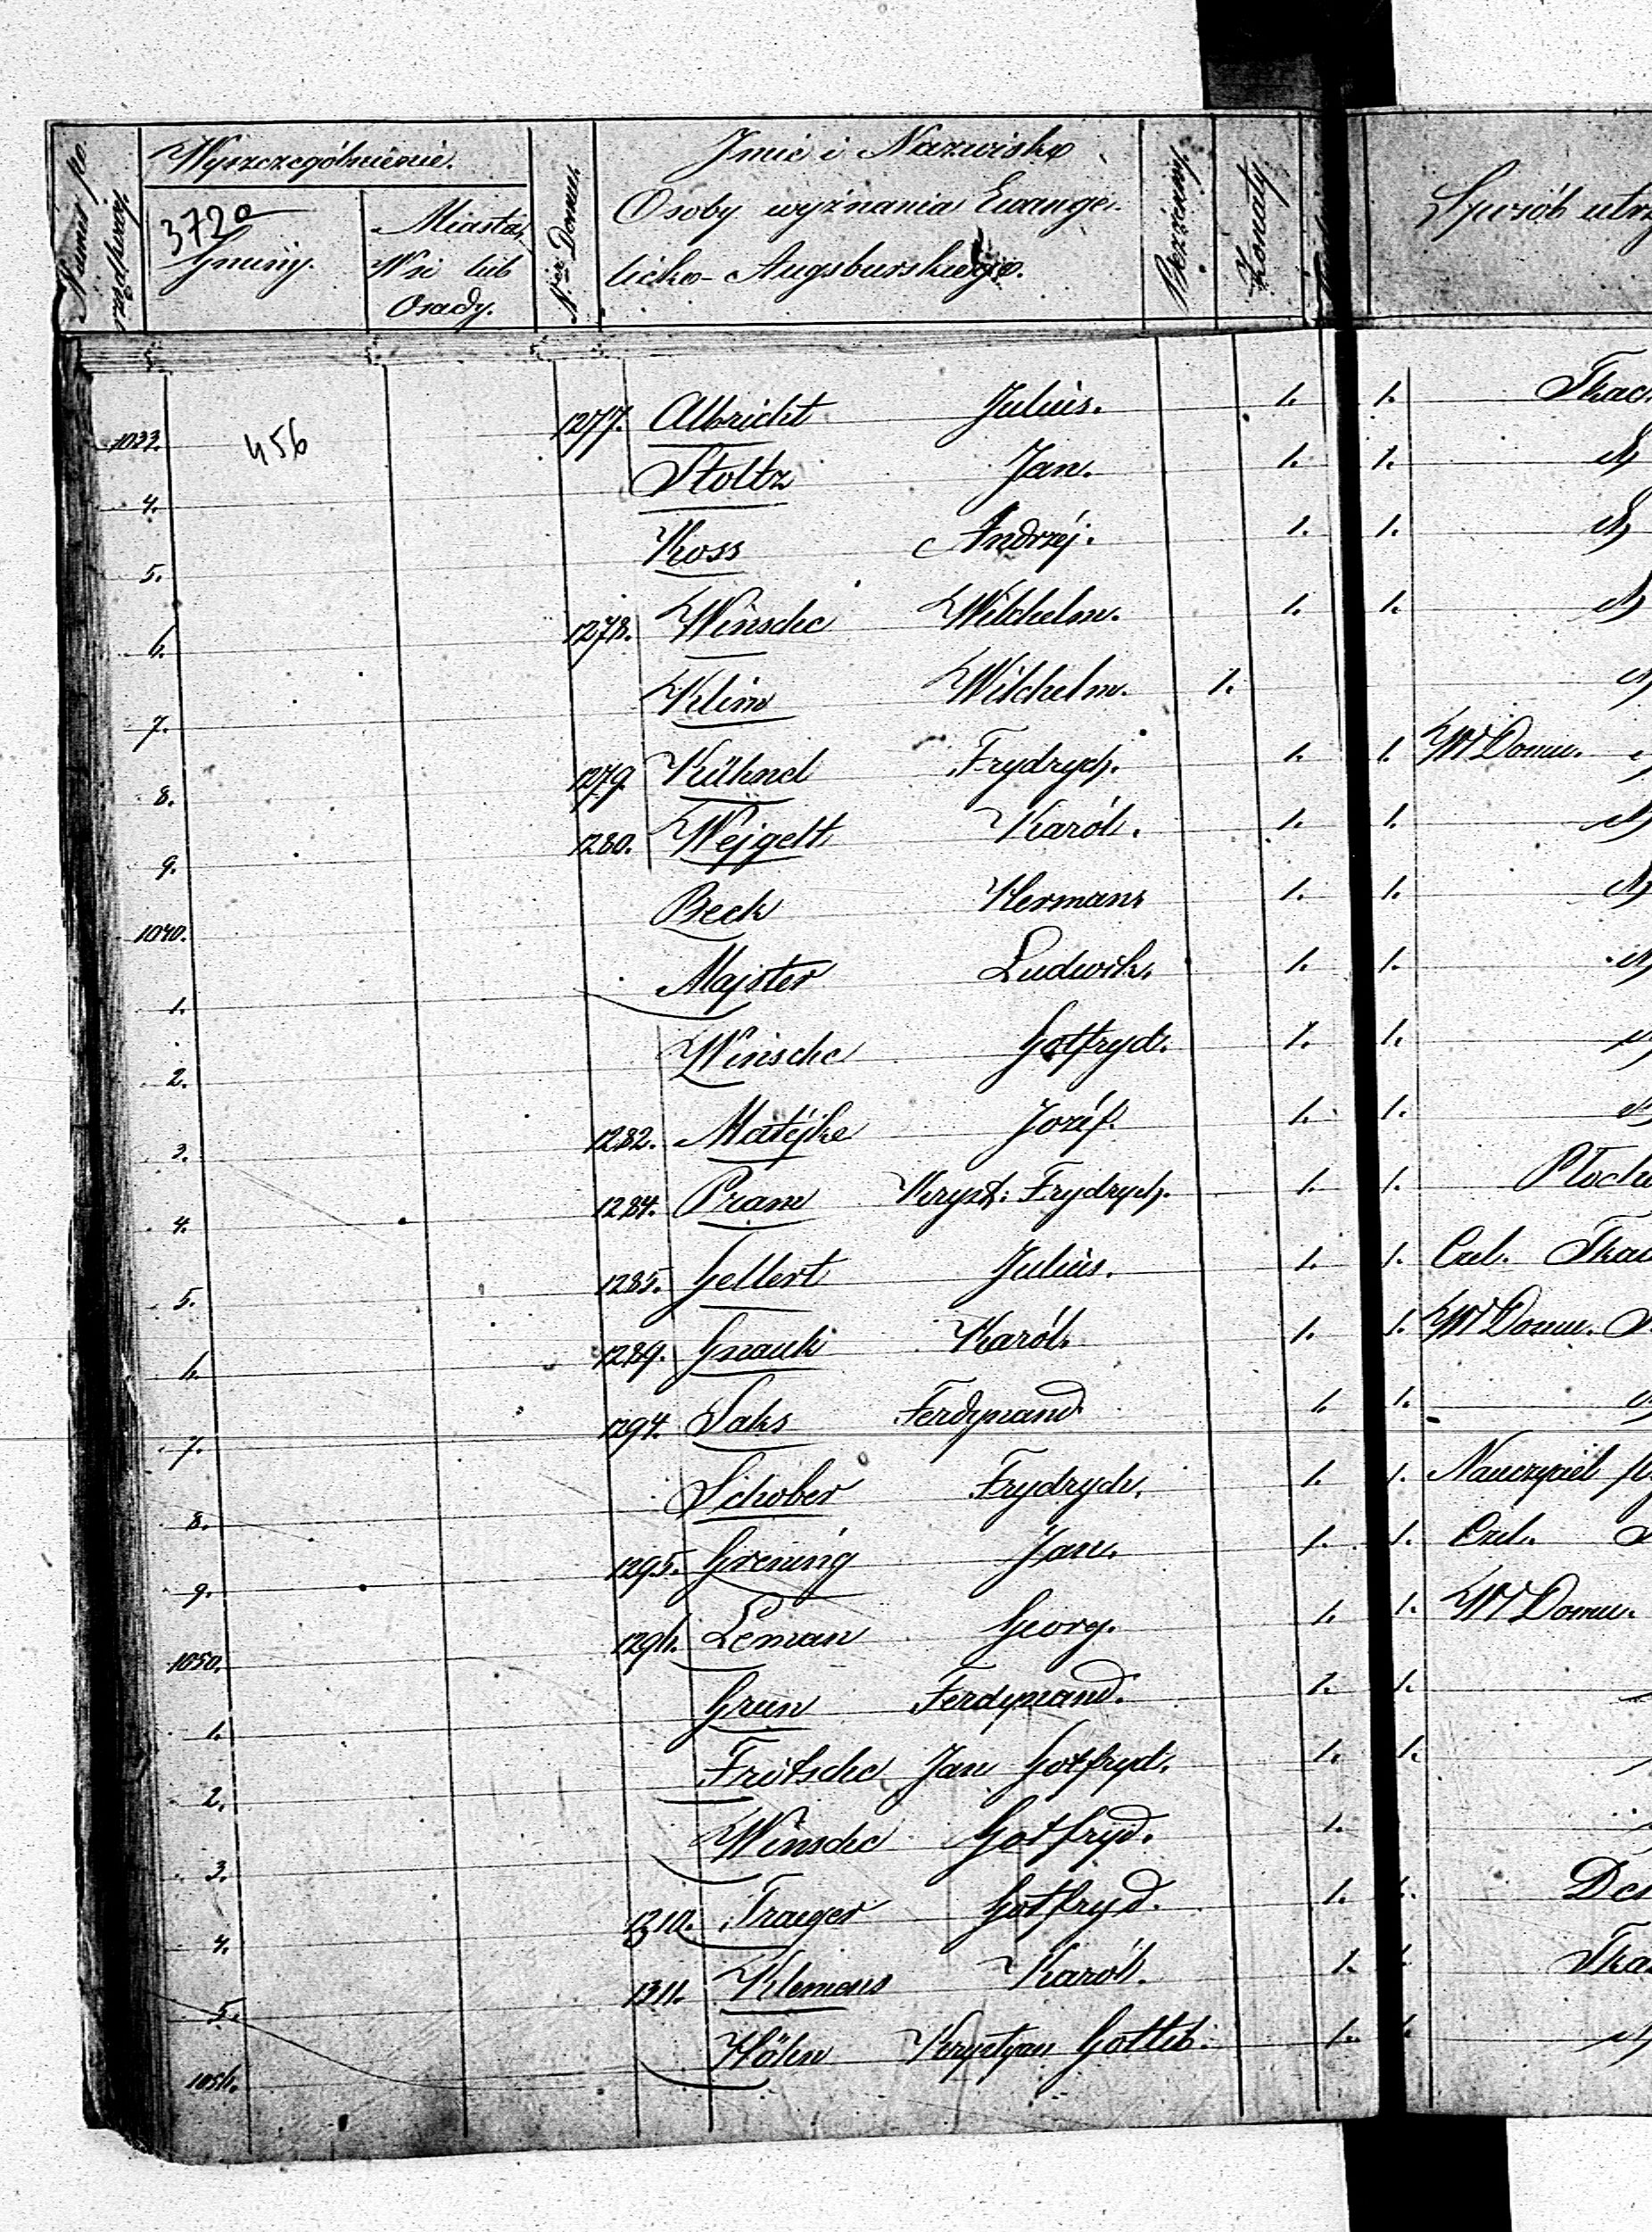 Numer po
rządkowy
Wyszczególnienie.
372a
Gminy.
Miasta,
Wsi lub
Osady.
Ner Domu.
Imie i Nazwisko
Osoby wyznania Ewange-
licko-Augsburskiego.
Bezżenny.
Żonaty
Sposób utrz
456
1033. 1277. Albricht Julius. 1. 1. Tkac
4. Stoltz Jan. 1. 1.
5. Koss Andrzéj. 1. 1.
6. 1278. Winsche Wilchelm. 1. 1.
7. Klim Wilchelm. 1.
8. 1279. Kühnel Frydrych. 1. 1. W Domu.
9. 1280. Wejgelt Karól. 1. 1.
1040. Beck Herman 1. 1.
1. Majster Ludwik. 1. 1.
2. Winsche Gotfryd. 1. 1.
3. 1282. Matejke Jozéf. 1. 1.
4. 1284. Pram Kryst: Frydrych. 1. 1.
5. 1285. Gellert Julius. 1. 1. Czel. Tkac
6. 1289. Gnauk Karól. 1. 1. W Domu.
7. 1294. Saks Ferdynand 1. 1.
8. Schober Frydrych. 1. 1. Nauczyciel
9. 1295. Grening Jan. 1. 1. Czel.
1050. 1296. Leman Georg. 1. 1. W Domu.
1. Grun Ferdynand. 1. 1.
2. Fritsche Jan Gotfryd. 1. 1.
3. Winsche Gotfryd. 1.
4. 1310. Traeger Gotfryd. 1. 1.
5. 1311. Klemans Karól. 1. 1. Tka
1056. Höhn Krystyan Gottlib. 1. 1.